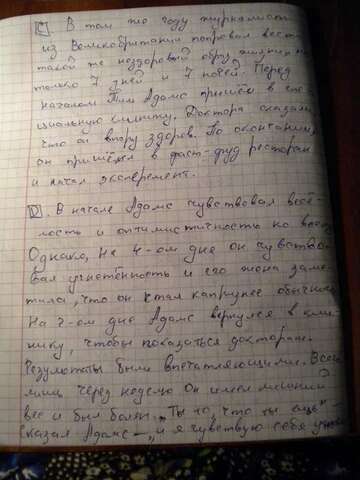 C. В том же году журналист
из Великобритании попробовал вест
такой же нездоровый образ жизни но
только 7 дней и 7 ночей. Перед
началом Тим Адамс пришёл в спе
циальную клинику. Доктора сказали,
что он впору здоров. По окончании
он пришёл в фаст-фуд ресторан
и начал эксперемент.
D. В начале Адамс чувствовал весё
лость и оптимистичность ко всему
Однако, на 4-ом дне он чувство
вал угнетённость и его жена заме
тила, что он стал капризнее обычного
На 7-ом дне Адамс вернулся в кли
нику, чтобы показаться докторам.
Результаты были впечатляющими. Всего
лишь через неделю он имел лишний
вес и был болен. "Ты то, что ты ешь"
сказал Адамс – "и я чувствую себя